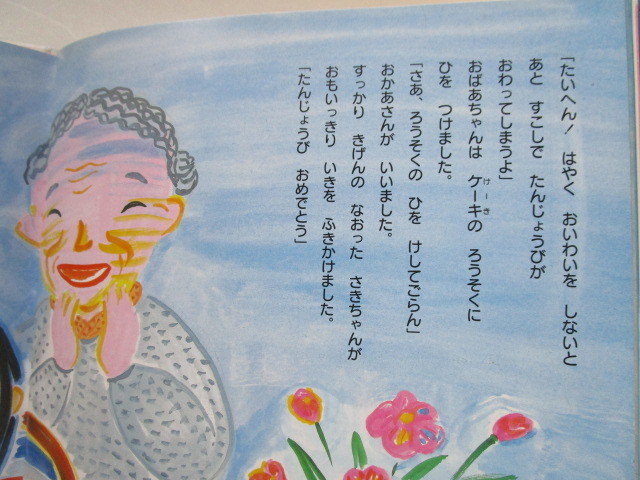 「たいへん！　はやく　おいわいを　しないと
あと　すこしで　たんじょうびが
おわってしまうよ」
おばあちゃんは　ケーキの　ろうそくに
けーき
ひを　つけました。
「さあ、ろうそくの　ひを　けしてごらん」
おかあさんが　いいました。
すっかり　きげんの　なおった　さきちゃんが
おもいっきり　いきを　ふきかけました。
「たんじょうび　おめでとう」